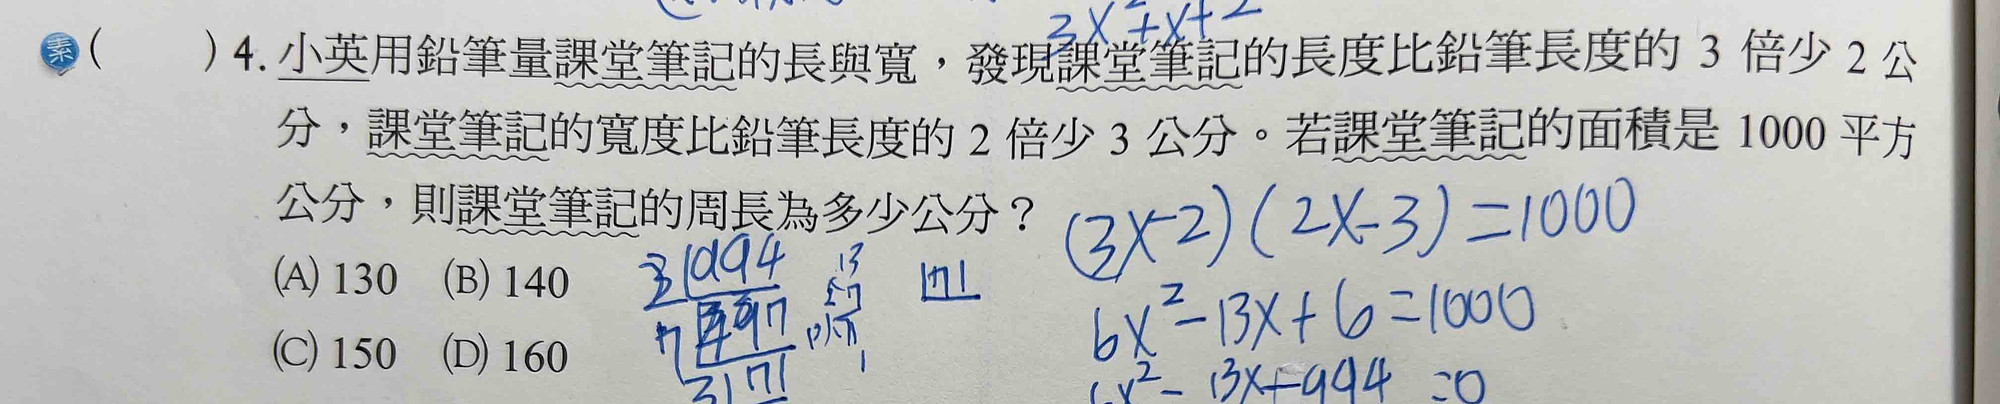 3x²+x+2
素( )4. 小英用鉛筆量課堂筆記的長與寬，發現課堂筆記的長度比鉛筆長度的 3 倍少 2 公
分，課堂筆記的寬度比鉛筆長度的 2 倍少 3 公分。若課堂筆記的面積是 1000 平方
公分，則課堂筆記的周長為多少公分？
(A) 130 (B) 140
(C) 150 (D) 160
(3x-2)(2x-3)=1000
6x²-13x+6=1000
6x²-13x-994=0
994
71